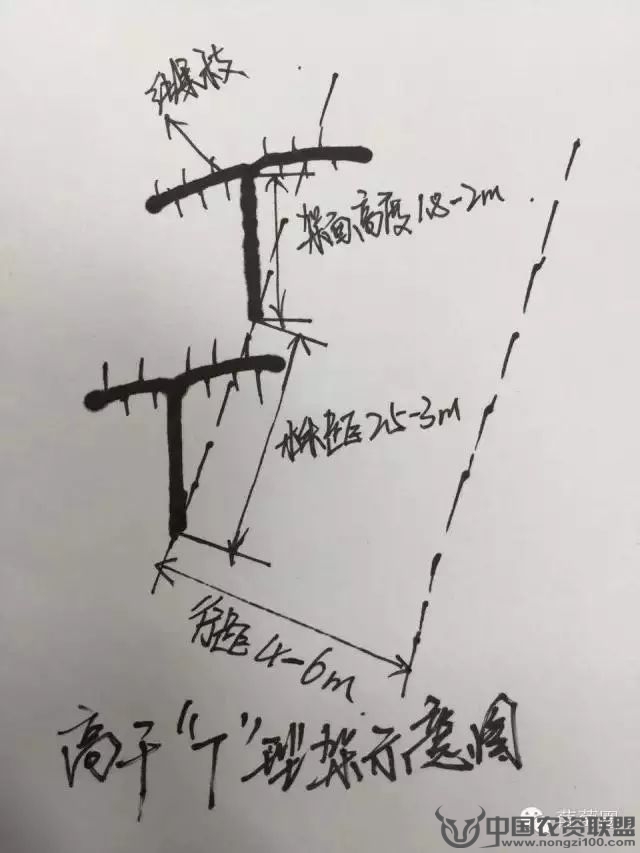 结果枝
架面高度1.8-2m
株距2.5-3m
行距4-6m
高干“T”型架示意图
中国农资联盟
www.nongzi100.com